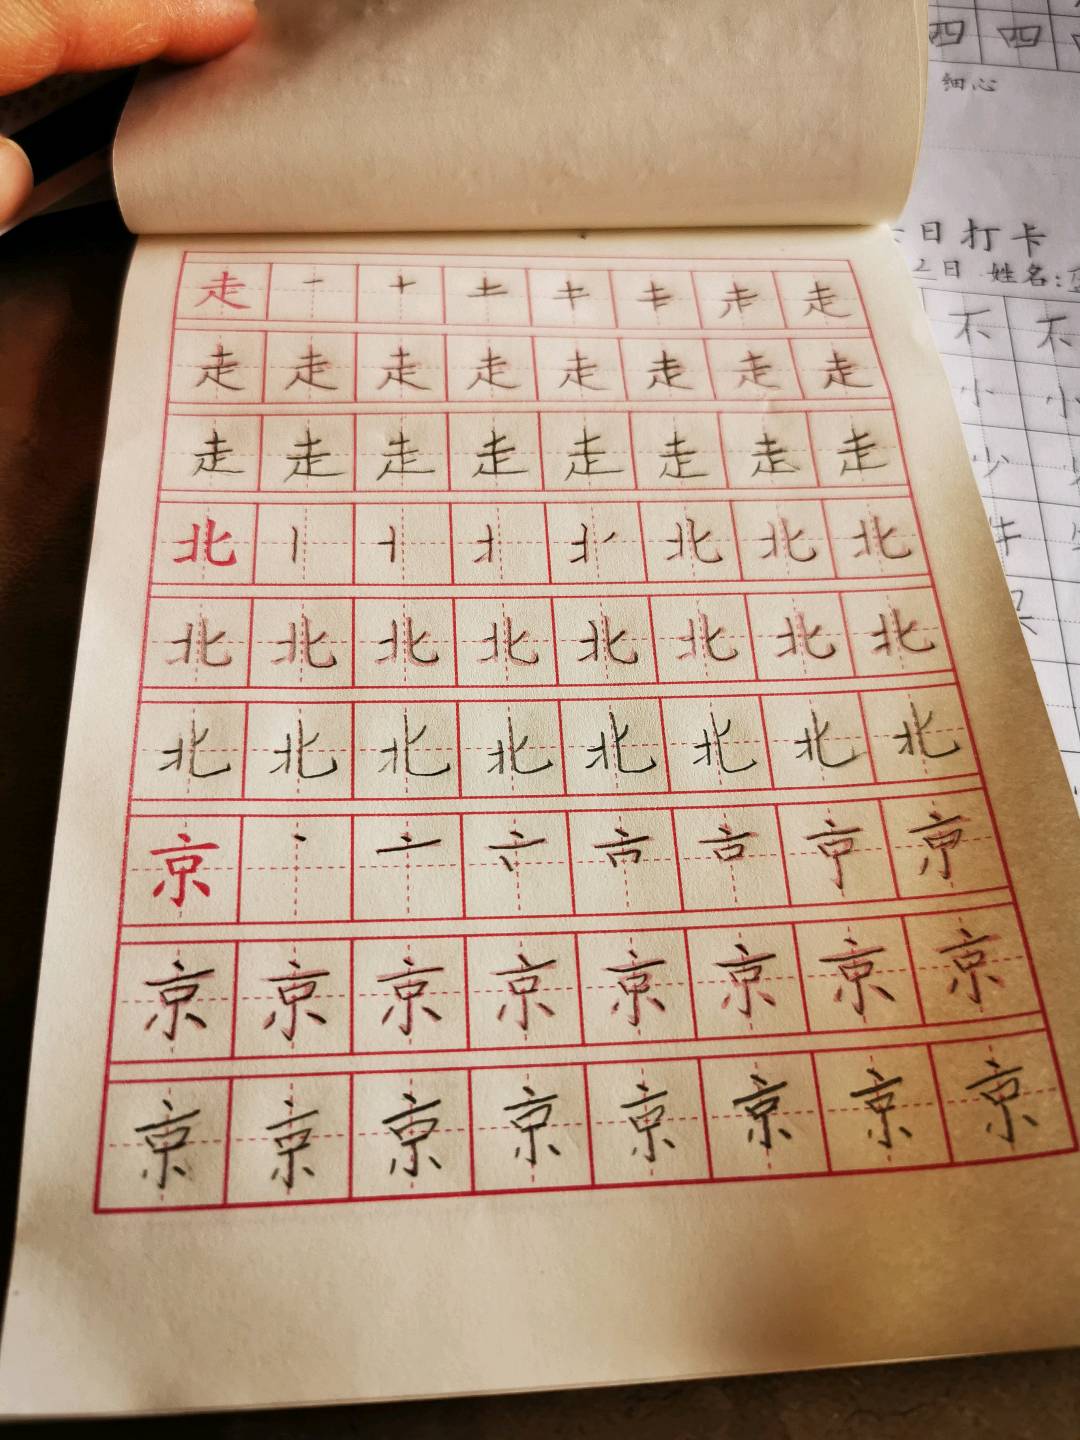 走 一 十 土 キ キ 走
走 走 走 走 走 走 走 走
走 走 走 走 走 走 走 走
北 丨 北 北 北
北 北 北 北 北 北 北 北
北 北 北 北 北 北 北 北
京 丶 亠 京
京 京 京 京 京 京 京 京
京 京 京 京 京 京 京 京
四 四
细心
日打卡
日 姓名:
不 不
小 小
少
牛